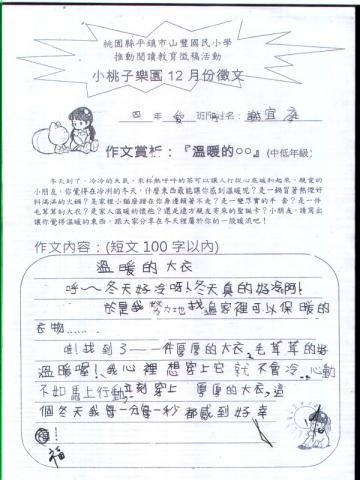 桃園縣平鎮市山豐國民小學
推動閱讀教育徵稿活動
小桃子樂園12月份徵文
四 年 愛 班 姓名： 謝宜庭
作文賞析：『溫暖的○○』(中低年級)
冬天到了，冷冷的天氣，來杯熱呼呼的茶可以讓人打從心底暖和起來，親愛的
小朋友，你覺得在冷冽的冬天，什麼東西最能讓你感到溫暖呢？是一鍋冒著熱煙好
料滿滿的火鍋？是家裡小貓磨蹭在你身邊賴著不走？是一雙厚實的手套？是一件
毛茸茸的大衣？是家人溫暖的懷抱？還是遠方親友寄來的聖誕卡？小朋友，請寫出
讓你覺得溫暖的東西，跟大家分享在冬天裡屬於你的一股暖流吧！
作文內容：(短文100字以內)
溫暖的大衣
呼～冬天好冷呀!冬天真的好冷阿!
於是我努力地找這家裡可以保暖的
衣物……
哇!找到了——件厚厚的大衣,毛茸茸的好
溫暖喔!我心裡想穿上它就不會冷,心動
不如馬上行動,立刻穿上厚厚的大衣,這
個冬天我每一分每一秒都感到好幸
福!